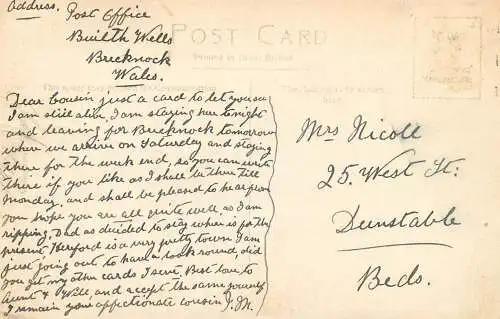 Address. Post Office
Builth Wells
Brecknock
Wales.
POST CARD
Dear Cousin just a card to let you see
I am still alive, I am staying here tonight
and leaving for Brecknock tomorrow
where we arrive on Saturday and staying
there for the week end, so you can write
there if you like as I shall be there till
Monday, and shall be pleased to hear from
you hope you are all quite well, as I am
ripping, Dad as decided to stay where is for the
present, Hereford is a very pretty town I am
just going out to have a look round, did
you get my other cards I sent, Best love to
Aunt & Will, and accept the same yourself
I remain your affectionate cousin
Mrs Nicoll
25. West St:
Dunstable
Beds.